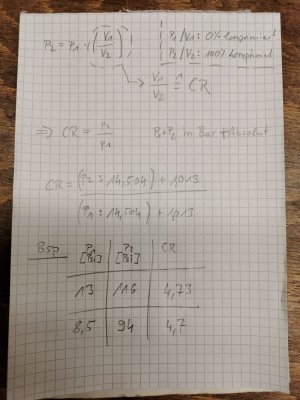 P2 = P1 · (V1/V2)
P1/V1: 0% komprimiert
P2/V2: 100% komprimiert
V1/V2 ≙ CR
=> CR = P2/P1
P1+P2 in Bar Absolut
CR = (P2 : 14,504) + 1,013
(P1 : 14,504) + 1,013
Bsp P1 [Psi] P2 [Psi] CR
13 116 4,73
8,5 94 4,7